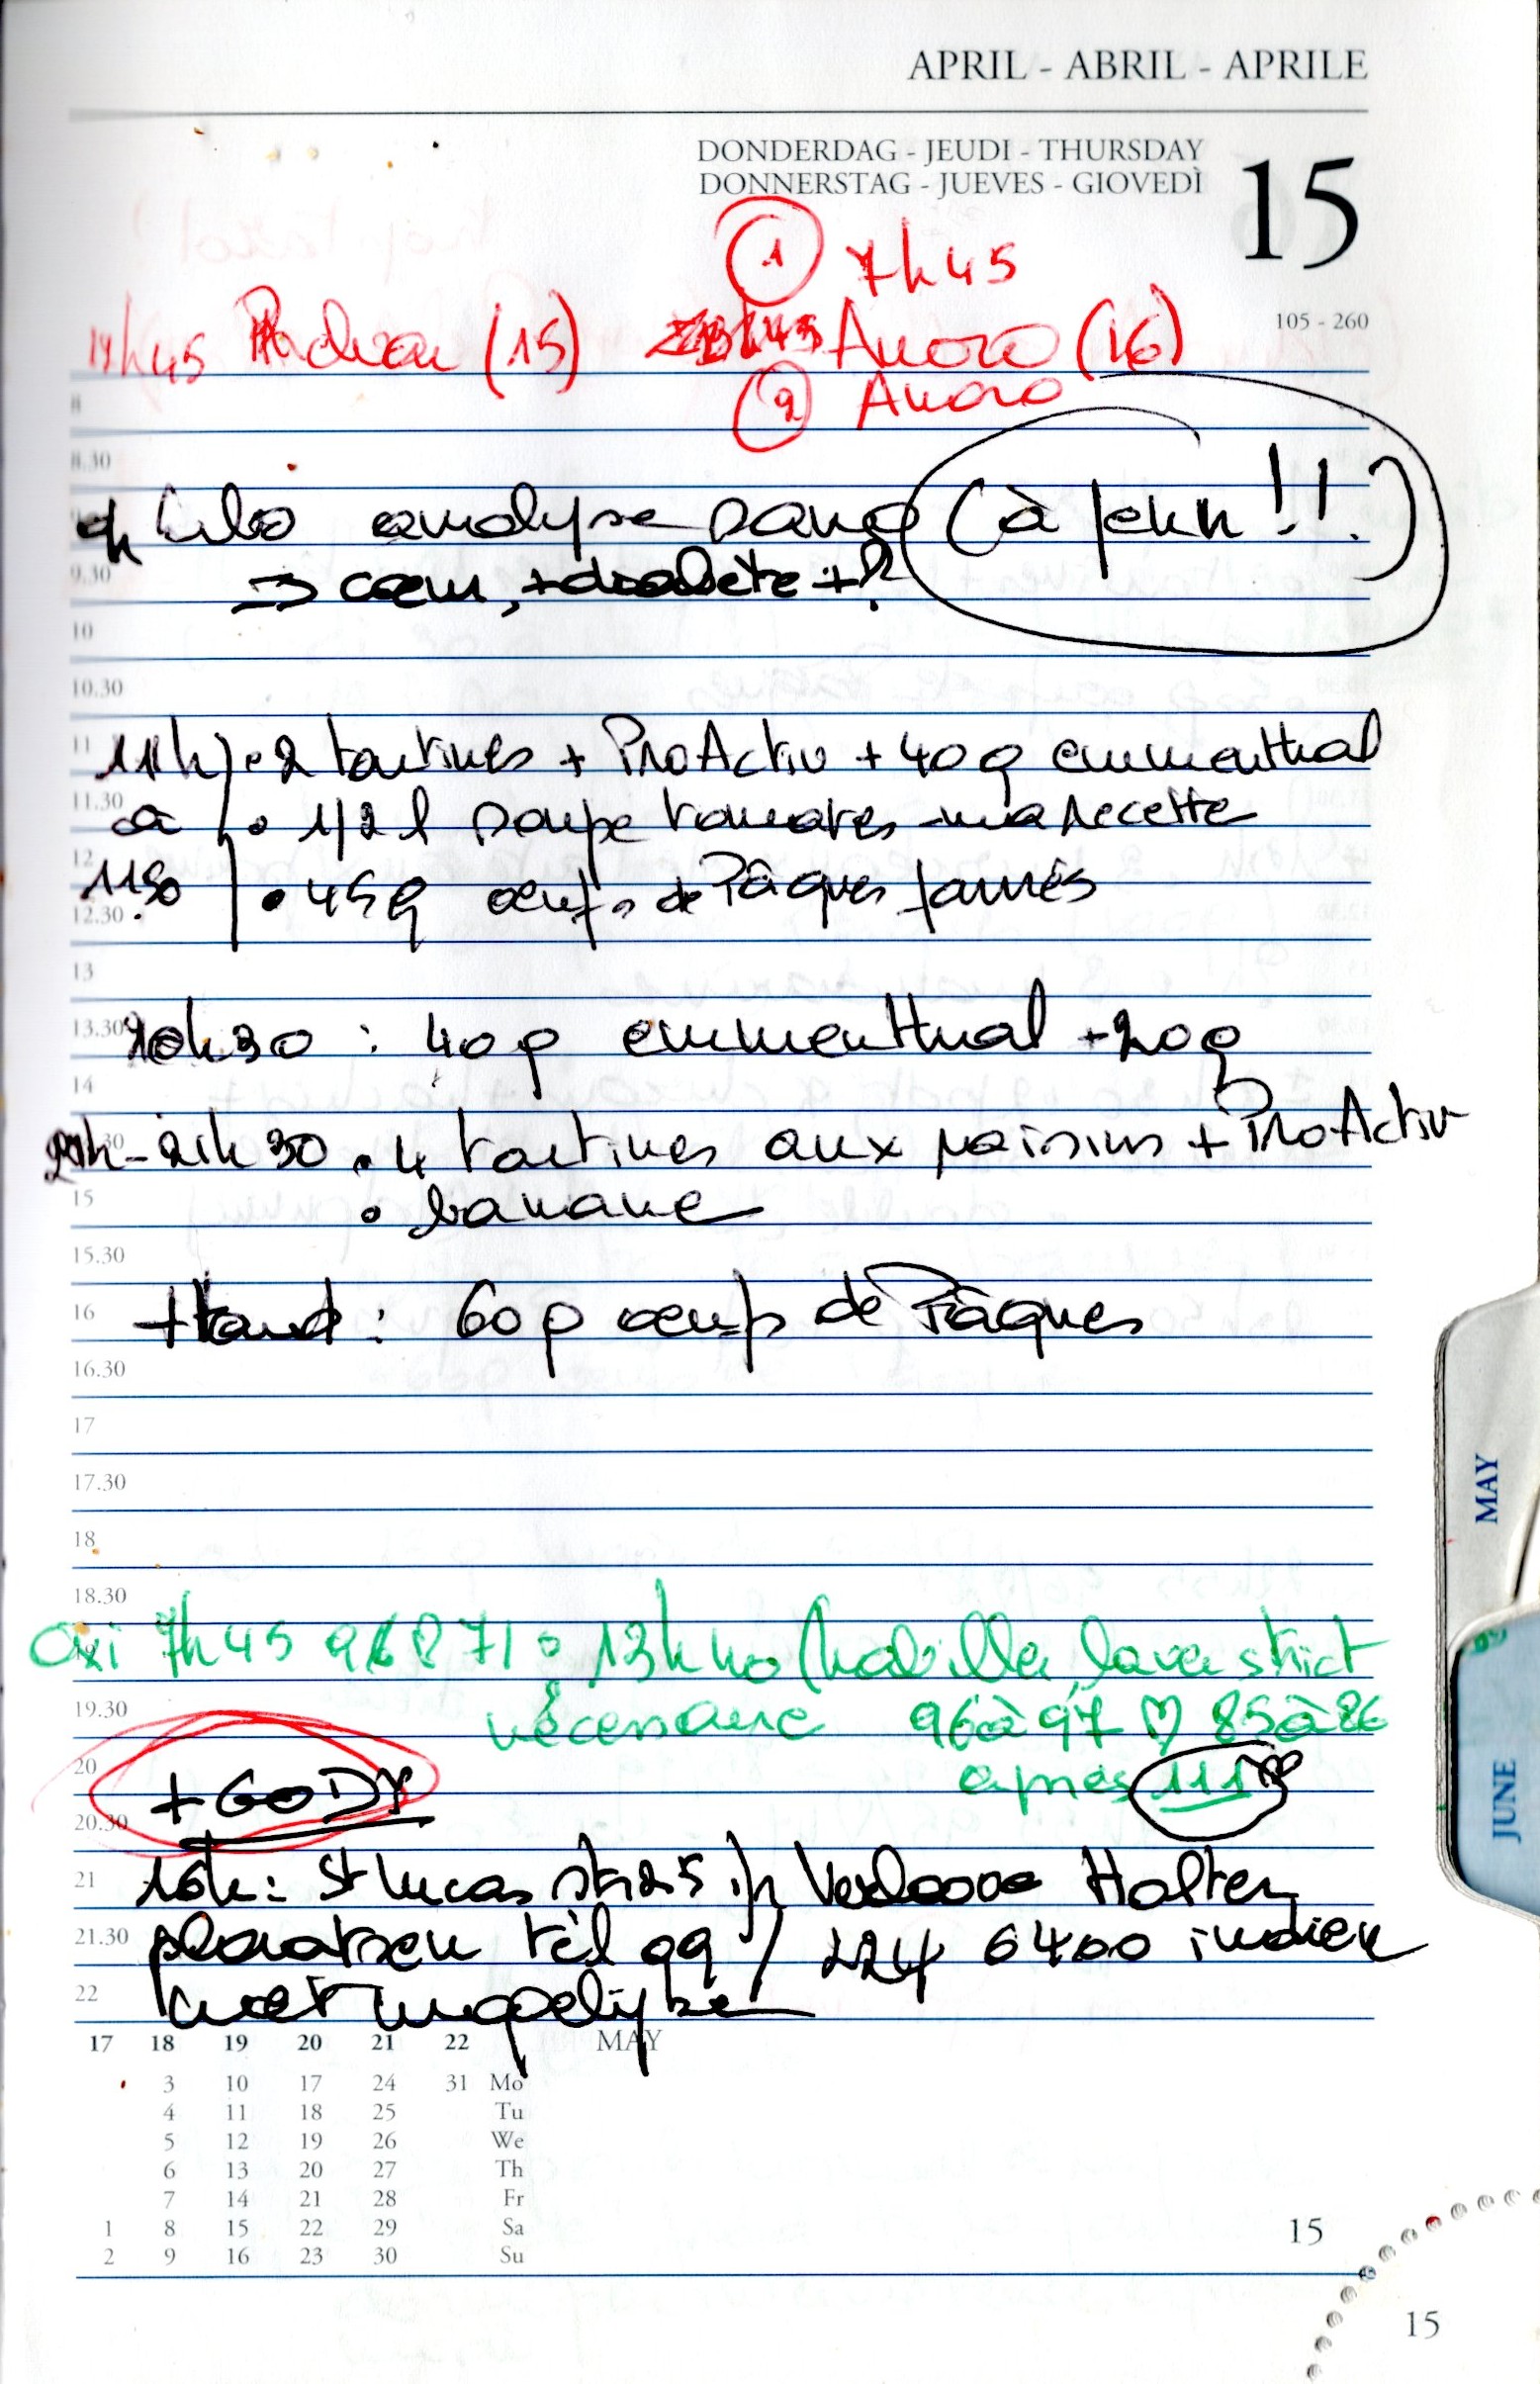 APRIL - ABRIL - APRILE
DONDERDAG - JEUDI - THURSDAY
DONNERSTAG - JUEVES - GIOVEDÌ
15
105 - 260
① 7h45
19h45 (15) Anoro (16)
② Anoro
8
8.30
9h Labo analyse sang (à jeun !!!)
9.30
⇒ coeur, + diabète + ?
10
10.30
11
11h • 2 tartines + ProActiv + 40g emmenthal
11.30
à • 1/2 l soupe tomates ma recette
12
1150 • 45g oeufs de Pâques fourrés
12.30
13
13.30
20h30 : 40g emmenthal + 20g
14
21h - 21h30 • 4 tartines aux raisins + ProActiv
15
• banane
15.30
16
+ tard : 60g oeufs de Pâques
16.30
17
17.30
18
18.30
Oxi 7h45 13h40 (habillée, lavée strict
19.30
nécessaire 96 à 97 ♡ 85 à 86
20
après 111 ♡
+ GODY
20.30
21
16h : St Lucas str 25 Holter
21.30
plaatsen tél 09 / 224 6400 indien
22
niet mogelijk
17 18 19 20 21 22 MAY
3 10 17 24 31 Mo
4 11 18 25 Tu
5 12 19 26 We
6 13 20 27 Th
7 14 21 28 Fr
1 8 15 22 29 Sa
2 9 16 23 30 Su
15
15
MAY
JUNE